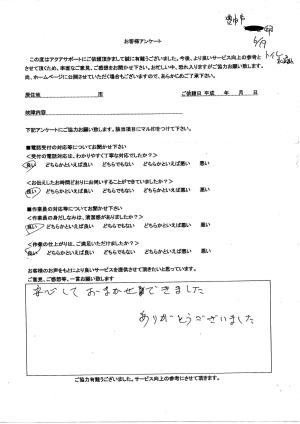 豊中市
邸
お客様アンケート
この度はアクアサポートにご依頼頂きまして誠に有難うございました。今後、より良いサービス向上の参考と
させて頂くため、率直なご意見、ご感想をお聞かせ下さい。お忙しい中、恐れ入りますがご協力お願い致します。
尚、ホームページに公開させていただく場合もございますので、あらかじめご了承下さい。
居住地 市 ご依頼日 平成 年 月 日
故障内容
下記アンケートにご協力お願い致します。該当項目にマル印をつけて下さい。
■電話受付の対応等についてお聞かせ下さい
<受付の電話対応は、わかりやすく丁寧な対応でしたか?>
良い どちらかといえば良い どちらでもない どちらかといえば悪い 悪い
<お伝えしたお時間どおりにお伺いすることができていましたか?>
良い どちらかといえば良い どちらでもない どちらかといえば悪い 悪い
■作業員の対応等についてお聞かせ下さい
<作業員の身だしなみは、清潔感がありましたか?>
良い どちらかといえば良い どちらでもない どちらかといえば悪い 悪い
<作業の仕上がりは、ご満足いただけましたか?>
良い どちらかといえば良い どちらでもない どちらかといえば悪い 悪い
お客様のお声をもとにより良いサービスを提供させて頂きたいと思っています。
ご意見、ご感想等、一言お願い致します
安心しておまかせできました
ありがとうございました
ご協力有難うございました。サービス向上の参考にさせて頂きます。